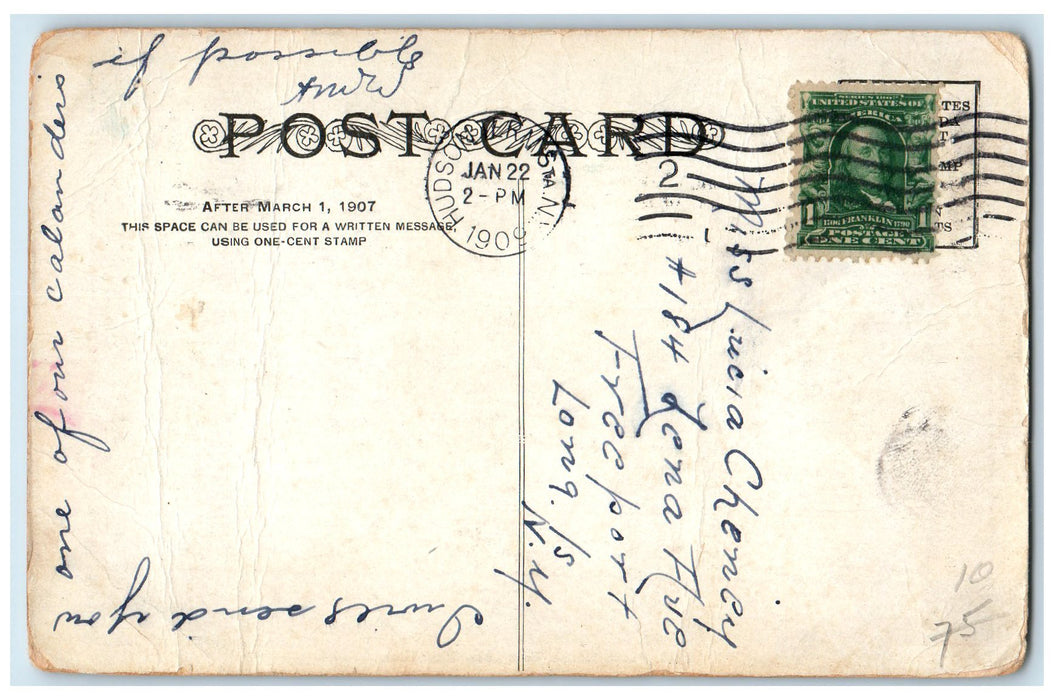 POST CARD
AFTER MARCH 1, 1907
THIS SPACE CAN BE USED FOR A WRITTEN MESSAGE,
USING ONE-CENT STAMP
HUDSON STA. N.
JAN 22
2 - PM
1909
2
SERIES 1902
UNITED STATES OF
AMERICA
1 FRANKLIN 1
POSTAGE
ONE CENT
TES
MP
TS
Miss Lucia Cheney
#184 Lena Ave
Freeport
Long. Is
N.Y.
I will send you
one of our calanders
if possible
10
75